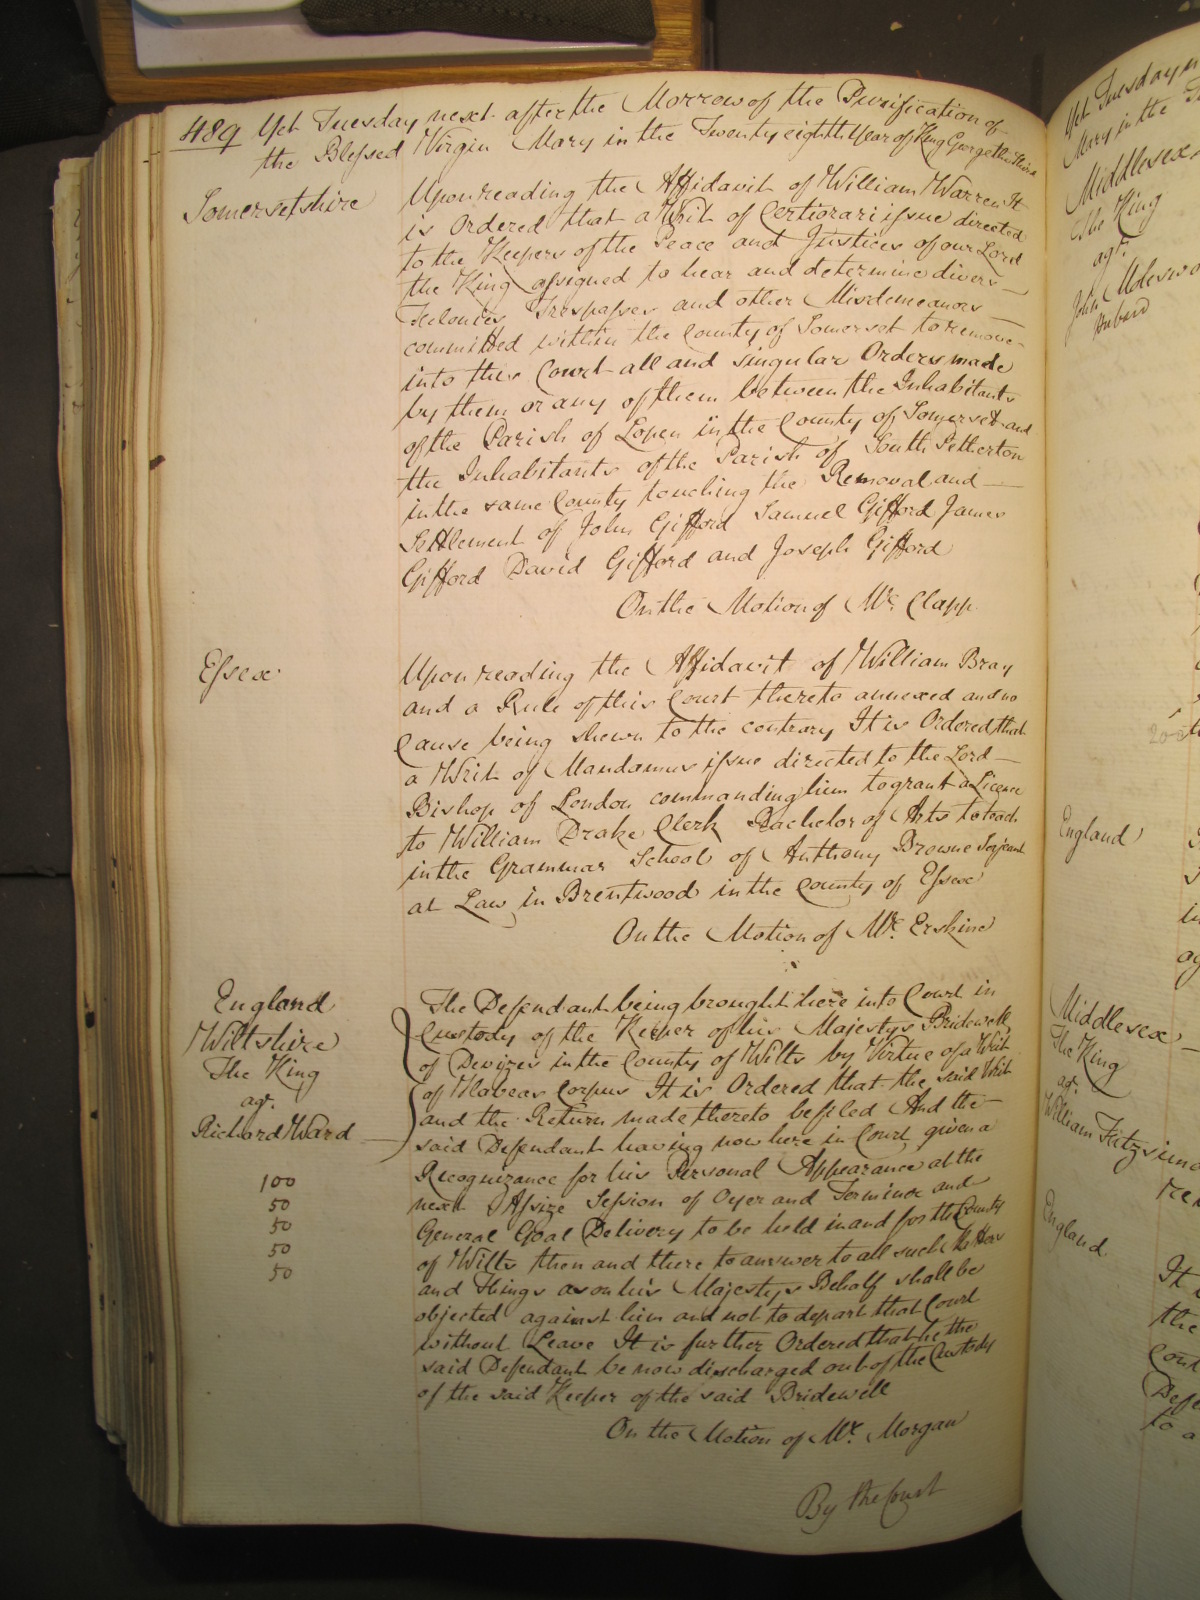 489 Yet Tuesday next after the Morrow of the Purification of
the Blessed Virgin Mary in the Twenty eighth Year of King George the Third
Somersetshire
Upon reading the Affidavit of William Warren It
is Ordered that a Writ of Certiorari issue directed
to the Keepers of the Peace and Justices of our Lord
the King assigned to hear and determine divers
Felonies Trespasses and other Misdemeanors
committed within the County of Somerset to remove
into this Court all and singular Orders made
by them or any of them between the Inhabitants
of the Parish of Lopen in the County of Somerset and
the Inhabitants of the Parish of South Petherton
in the same County touching the Removal and
Settlement of John Gifford Samuel Gifford James
Gifford David Gifford and Joseph Gifford
On the Motion of Mr. Clapp
Essex
Upon reading the Affidavit of William Bray
and a Rule of this Court thereto annexed and no
Cause being shewn to the contrary It is Ordered that
a Writ of Mandamus issue directed to the Lord
Bishop of London commanding him to grant a Licence
to William Drake Clerk Bachelor of Arts to teach
in the Grammar School of Anthony Browne Serjeant
at Law in Brentwood in the County of Essex
On the Motion of Mr. Erskine
England
Wiltshire
The King
agt.
Richard Ward
100
50
50
50
50
The Defendant being brought here into Court in
Custody of the Keeper of his Majestys Bridewell
of Devizes in the County of Wilts by Virtue of a Writ
of Habeas Corpus It is Ordered that the said Writ
and the Return made thereto be filed And the
said Defendant having now here in Court given a
Recognizance for his Personal Appearance at the
next Assize Session of Oyer and Terminer and
General Goal Delivery to be held in and for the County
of Wilts then and there to answer to all such
and Things as on his Majestys Behalf shall be
objected against him and not to depart that Court
without Leave It is further Ordered that he the
said Defendant be now discharged out of the Custody
of the said Keeper of the said Bridewell
On the Motion of Mr. Morgan
By the Court
Yet Tuesday
Mary in the
Middlesex
The King
agt.
John
England
Middlesex
The King
agt.
William
England
It
the
to a